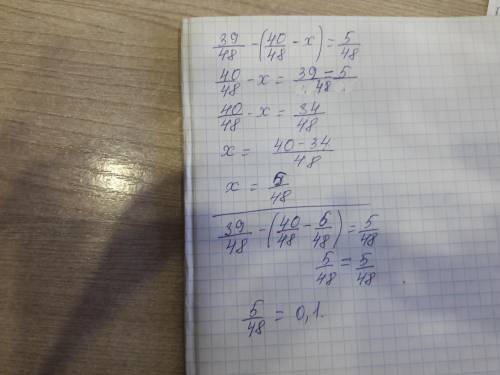 39/48 - (40/48 - x) = 5/48
40/48 - x = (39 - 5)/48
40/48 - x = 34/48
x = (40 - 34)/48
x = 6/48
39/48 - (40/48 - 6/48) = 5/48
5/48 = 5/48
5/48 = 0,1.